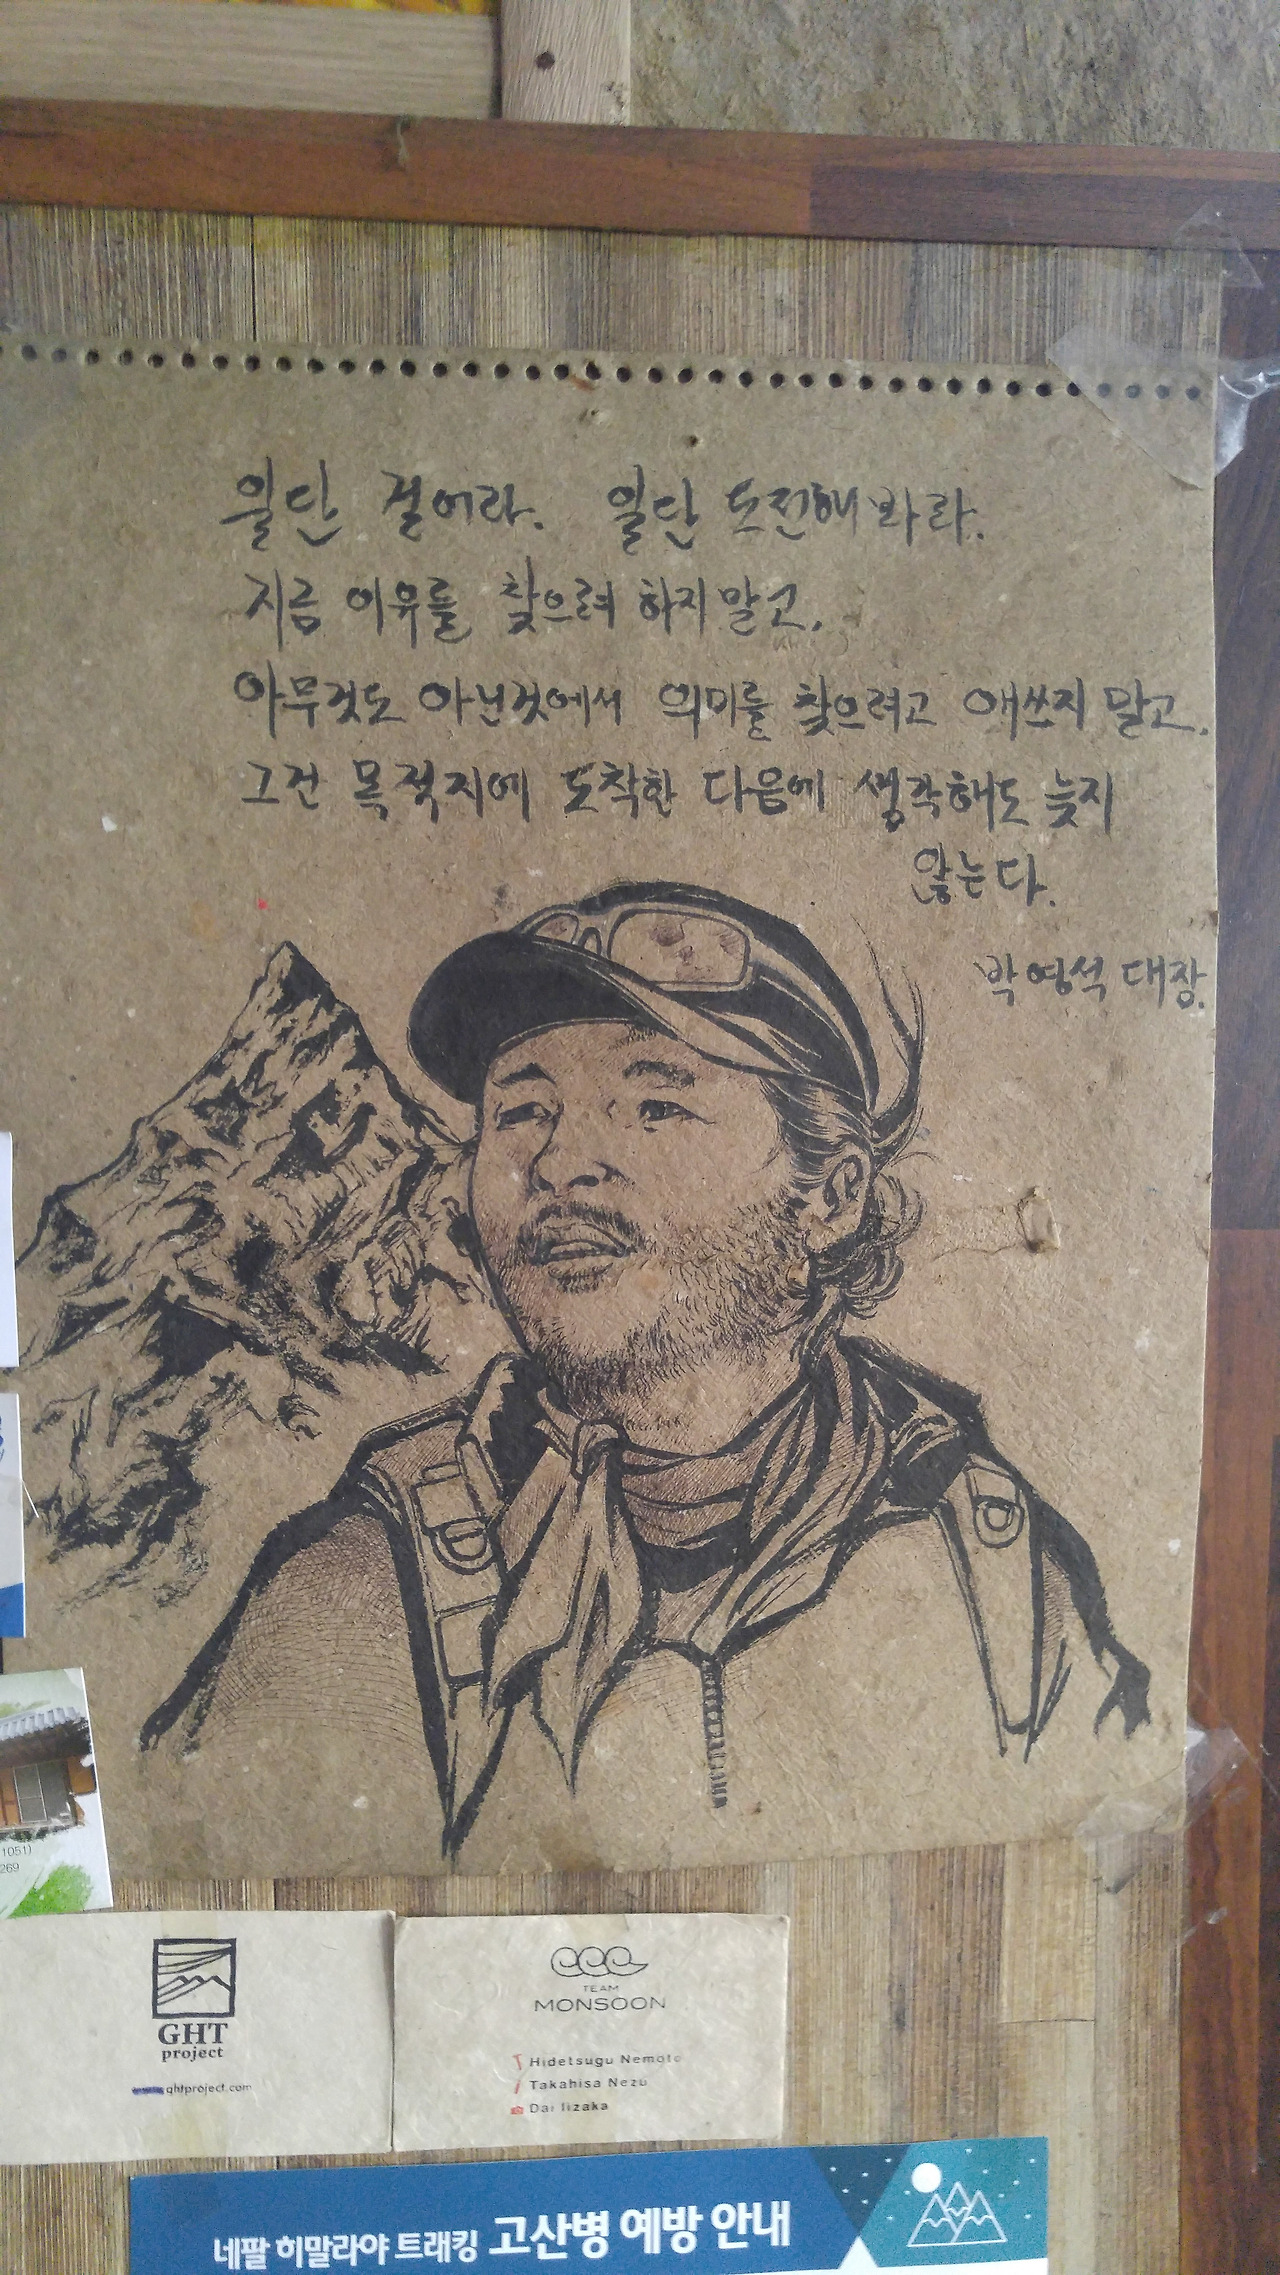 일단 걸어라. 일단 도전해 봐라.
지금 이유를 찾으려 하지 말고,
아무것도 아닌것에서 의미를 찾으려고 애쓰지 말고,
그건 목적지에 도착한 다음에 생각해도 늦지
않는다.
박영석 대장.
1051)
269
GHT
project
ghtproject.com
TEAM
MONSOON
Hidetsugu Nemoto
Takahisa Nezu
Dai Iizaka
네팔 히말라야 트래킹 고산병 예방 안내